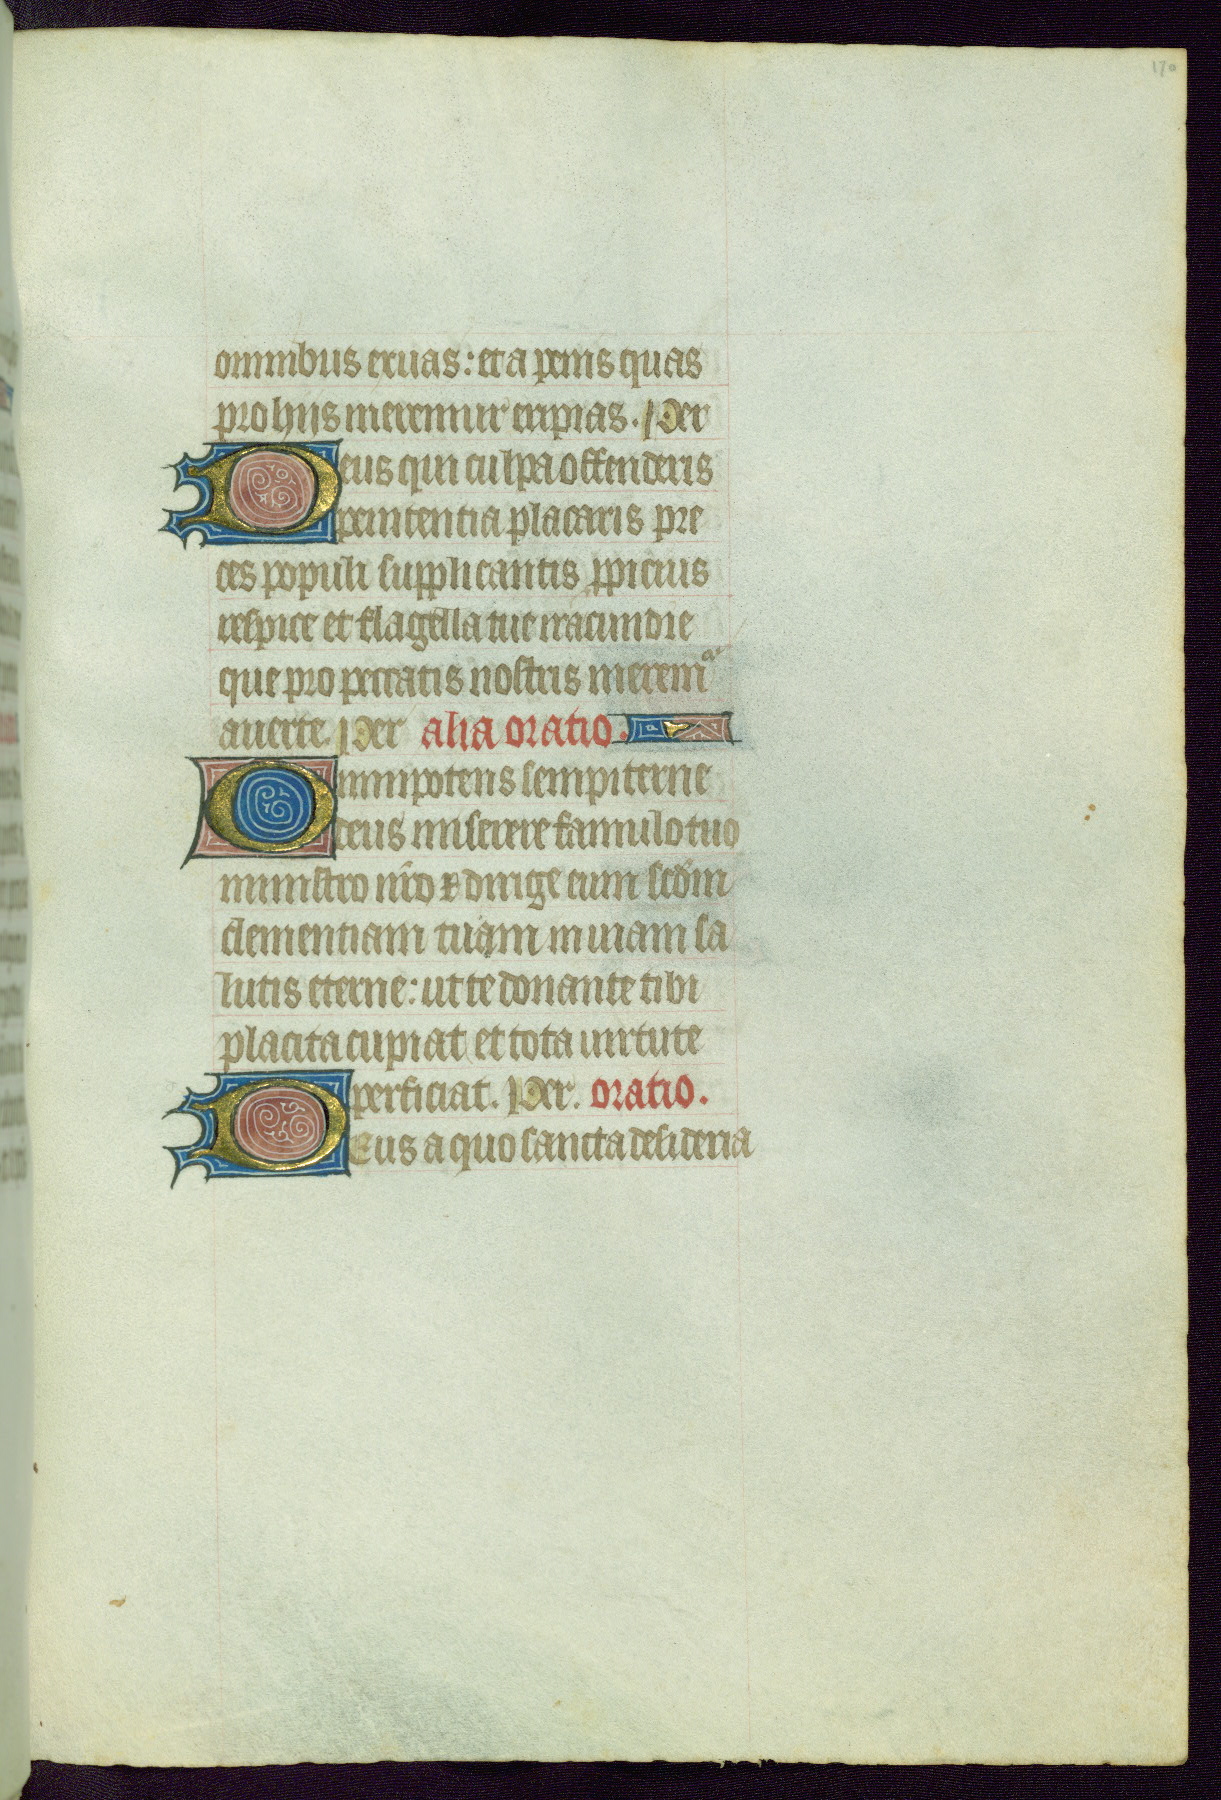 170
omnibus exuas: et a penis quas
pro hijs meremur eripias. Per
Deus qui culpa offenderis
penitentia placaris pre
ces populi supplicantis ꝓpicius
respice et flagella tue iracundie
que pro peccatis nostris merem᷑
auerte. Per alia oratio.
Omnipotens sempiterne
deus miserere famulo tuo
ministro nr̄o ⁊ dirige eum scd̄m
clementiam tuam in uiam sa
lutis eterne: ut te donante tibi
placita cupiat et tota uirtute
perficiat. Per. oratio.
DEus a quo sancta desideria